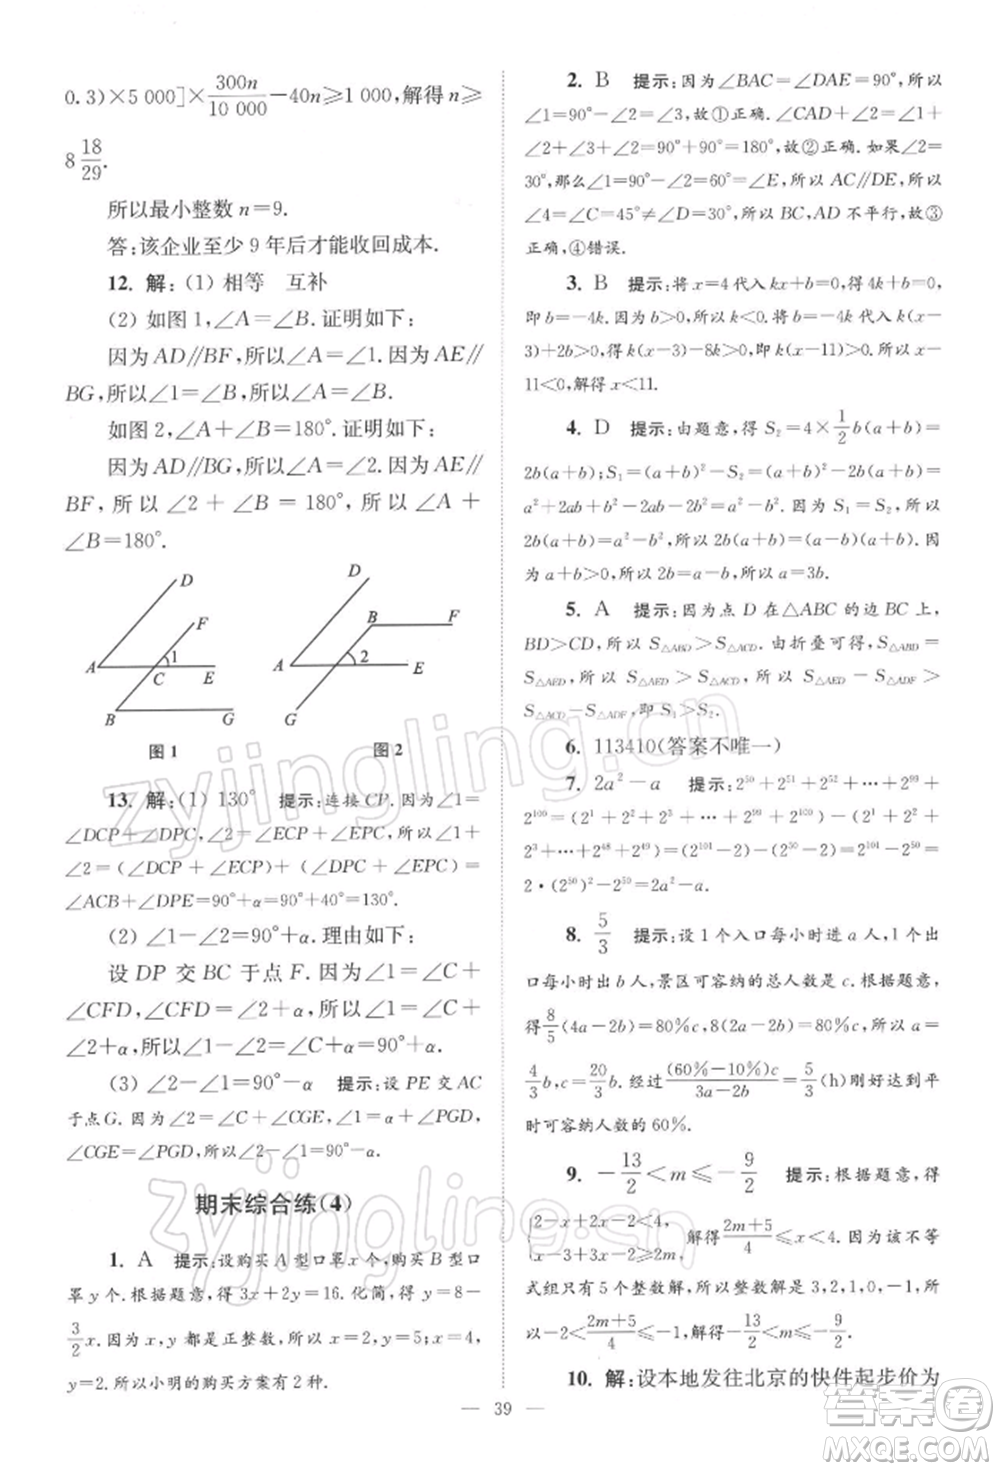 0.3)×5 000]×300n/10 000-40n≥1 000,解得 n≥
8 18/29.
所以最小整数 n=9.
答:该企业至少 9 年后才能收回成本.
12. 解:(1) 相等 互补
(2) 如图 1,∠A=∠B.证明如下:
因为 AD∥BF,所以∠A=∠1.因为 AE∥
BG,所以∠1=∠B,所以∠A=∠B.
如图 2,∠A+∠B=180°.证明如下:
因为 AD∥BG,所以∠A=∠2.因为 AE∥
BF,所以∠2+∠B=180°,所以∠A+
∠B=180°.
D
F
1
A
C
E
B
G
图 1
D
B
F
2
A
E
G
图 2
13. 解:(1) 130° 提示:连接 CP.因为∠1=
∠DCP+∠DPC,∠2=∠ECP+∠EPC,所以∠1+
∠2=(∠DCP+∠ECP)+(∠DPC+∠EPC)=
∠ACB+∠DPE=90°+α=90°+40°=130°.
(2) ∠1-∠2=90°+α.理由如下:
设 DP 交 BC 于点 F.因为∠1=∠C+
∠CFD,∠CFD=∠2+α,所以∠1=∠C+
∠2+α,所以∠1-∠2=∠C+α=90°+α.
(3) ∠2-∠1=90°-α 提示:设 PE 交 AC
于点 G.因为∠2=∠C+∠CGE,∠1=∠PGD+α,
∠CGE=∠PGD,所以∠2-∠1=90°-α.
期末综合练(4)
1. A 提示:设购买 A 型口罩 x 个,购买 B 型口
罩 y 个.根据题意,得 3x+2y=16.化简,得 y=8-
3/2x.因为 x,y 都是正整数,所以 x=2,y=5;x=4,
y=2.所以小明的购买方案有 2 种.
2. B 提示:因为∠BAC=∠DAE=90°,所以
∠1=90°-∠2=∠3,故①正确.∠CAD+∠2=∠1+
∠2+∠3+∠2=90°+90°=180°,故②正确.如果∠2=
30°,那么∠1=90°-∠2=60°=∠E,所以 AC∥DE,所以
∠4=∠C=45°≠∠D=30°,所以 BC,AD 不平行,故③
正确,④错误.
3. B 提示:将 x=4 代入 kx+b=0,得 4k+b=0,
即 b=-4k.因为 b>0,所以 k<0.将 b=-4k 代入 k(x-
3)+2b>0,得 k(x-3)-8k>0,即 k(x-11)>0.所以 x-
11<0,解得 x<11.
4. D 提示:由题意,得 S₂=4×1/2b(a+b)=
2b(a+b);S₁=(a+b)²-S₂=(a+b)²-2b(a+b)=
a²+2ab+b²-2ab-2b²=a²-b².因为 S₁=S₂,所以
2b(a+b)=a²-b²,所以 2b(a+b)=(a-b)(a+b).因
为 a+b>0,所以 2b=a-b,所以 a=3b.
5. A 提示:因为点 D 在△ABC 的边 BC 上,
BD>CD,所以 S△ABD>S△ACD.由折叠可得,S△ABD=
S△AED,所以 S△AED>S△ACD,所以 S△AED-S△ADF>
S△ACD-S△ADF,即 S₁>S₂.
6. 113410(答案不唯一)
7. 2a²-a 提示:2⁵⁰+2⁵¹+2⁵²+…+2⁹⁹+
2¹⁰⁰=(2¹+2²+2³+…+2¹⁰⁰)-(2¹+2²+
2³+…+2⁴⁸+2⁴⁹)=(2¹⁰¹-2)-(2⁵⁰-2)=2¹⁰¹-2⁵⁰=
2·(2⁵⁰)²-2⁵⁰=2a²-a.
8. 5/3 提示:设 1 个入口每小时进 a 人,1 个出
口每小时出 b 人,景区可容纳的总人数为 c.根据题意,
得8/5(4a-2b)=80%c,8(2a-2b)=80%c,所以 a=
4/3b,c=20/3b.经过(60%-10%)c/3a-2b=5/3(h)刚好达到平
时可容纳人数的 60%.
9. -13/2<m≤-9/2 提示:根据题意,得
{2-x+2-x+2<4, x-3+x-3+1≥2m, 解得2m+5/4≤x<4.因为该不等
式组只有 5 个整数解,所以整数解为 3,2,1,0,-1,所
以-2<2m+5/4≤-1,解得-13/2<m≤-9/2.
10. 解:设本地发往北京的快件起步价为
39
zyjingling.cn
zyjingling.cn
答案圈
MXQE.COM